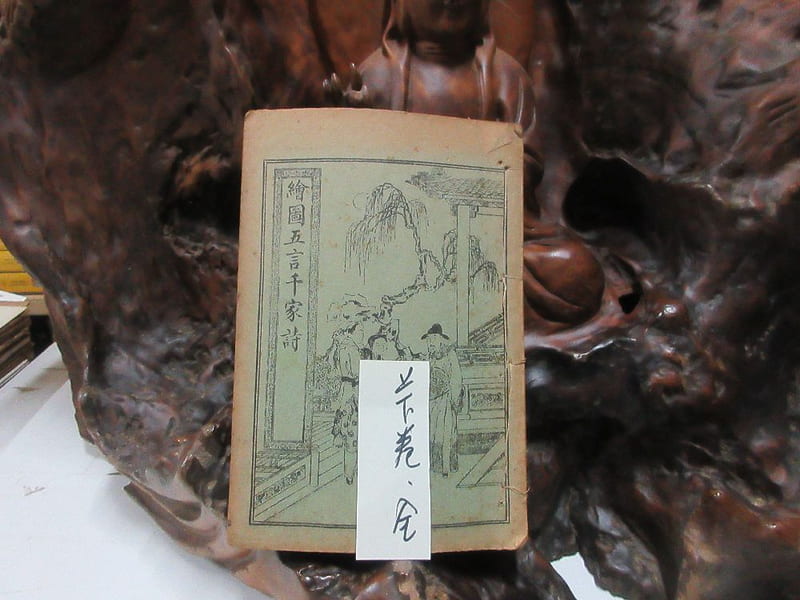 繪圖五言千家詩
上下卷、全